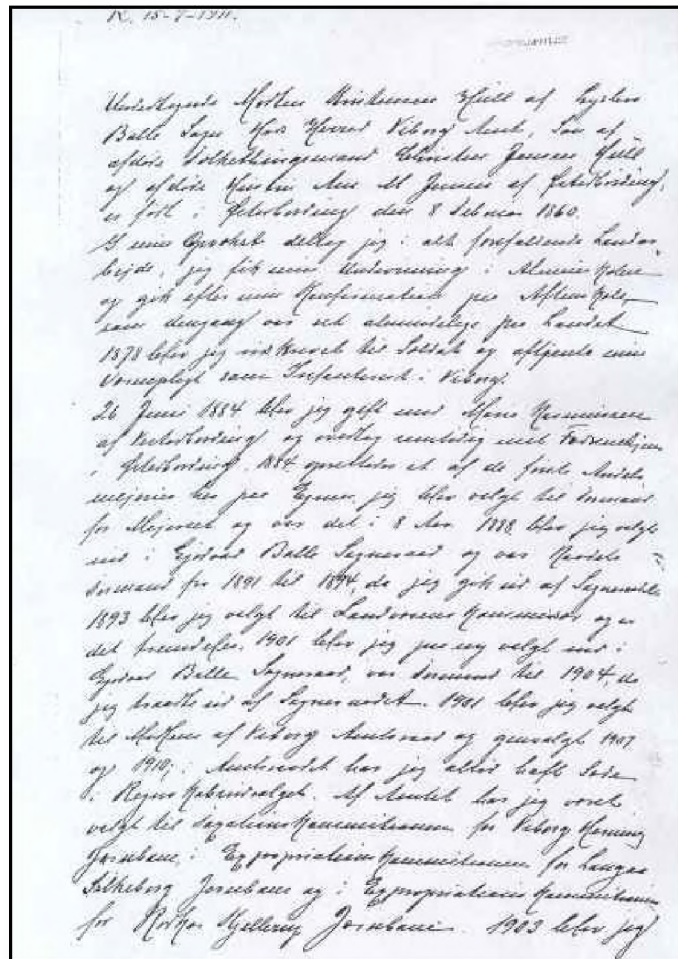 R. 15-7-1911.
Undertegnede Morten Kristensen Hüll af Lysten
Balle Sogn Hids Herred Viborg Amt, Søn af
afdøde Folketingsmand Christen Jensen Hüll
og afdøde Hustru Ane M Jensen af Østerbording,
er født i Østerbording den 8 Februar 1860.
I min Opvækst deltog jeg i alt forefaldende Landar-
bejde, jeg fik min Undervisning i Almueskolen
og gik efter min Konfirmation paa Aftenskole
som dengang var ret almindelige paa Landet
1878 blev jeg indskrevet til Soldat og aftjente min
Værnepligt som Infanterist i Viborg.
26 Juni 1884 blev jeg gift med Marie Rasmussen
af Vesterbording og overtog samtidig mit Fødrenehjem
i Østerbording. 1884 oprettedes et af de første Andels
mejerier her paa Egnen, jeg blev valgt til Formand
for Mejeriet og var det i 8 Aar. 1888 blev jeg valgt
ind i Gjødvad Balle Sogneraad og var Kredsens
Formand fra 1891 til 1894, da jeg gik ud af Sogneraadet
1893 blev jeg valgt til Landvæsens Kommissær og er
det fremdeles. 1901 blev jeg paa ny valgt ind i
Gjødvad Balle Sogneraad, var Formand til 1904, da
jeg traadte ud af Sogneraadet. 1901 blev jeg valgt
til Medlem af Viborg Amtsraad og genvalgt 1907
og 1910; i Amtsraadet har jeg altid haft Sæde
i Regnskabsudvalget. Af Amtet har jeg været
valgt til Taxationskommissionen for Viborg Herning
Jernbane, i Expropriationskommissionen for Langaa
Silkeborg Jernbane og i Expropriationskommissionen
for Rødkær Kjellerup Jernbane. 1903 blev jeg